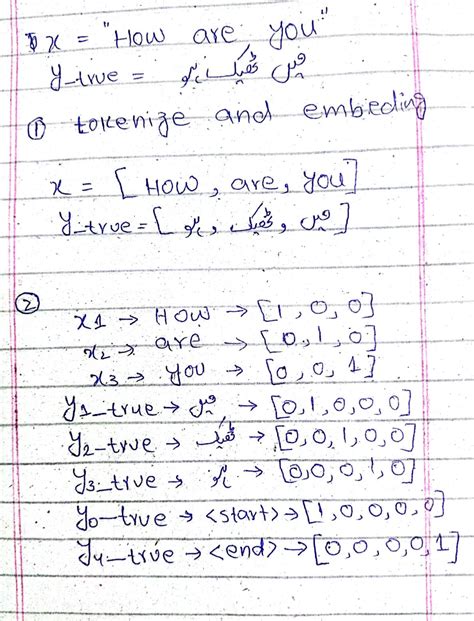 x = "How are you"
Y_true = میں ٹھیک ہو
① tokenize and embeding
x = [How, are, you]
Y_true = [میں , ٹھیک , ہو]
②
x1 → How → [1, 0, 0]
x2 → are → [0, 1, 0]
x3 → you → [0, 0, 1]
Y1_true → میں → [0, 1, 0, 0, 0]
Y2_true → ٹھیک → [0, 0, 1, 0, 0]
Y3_true → ہو → [0, 0, 0, 1, 0]
Y0_true → <start> → [1, 0, 0, 0, 0]
Y4_true → <end> → [0, 0, 0, 0, 1]